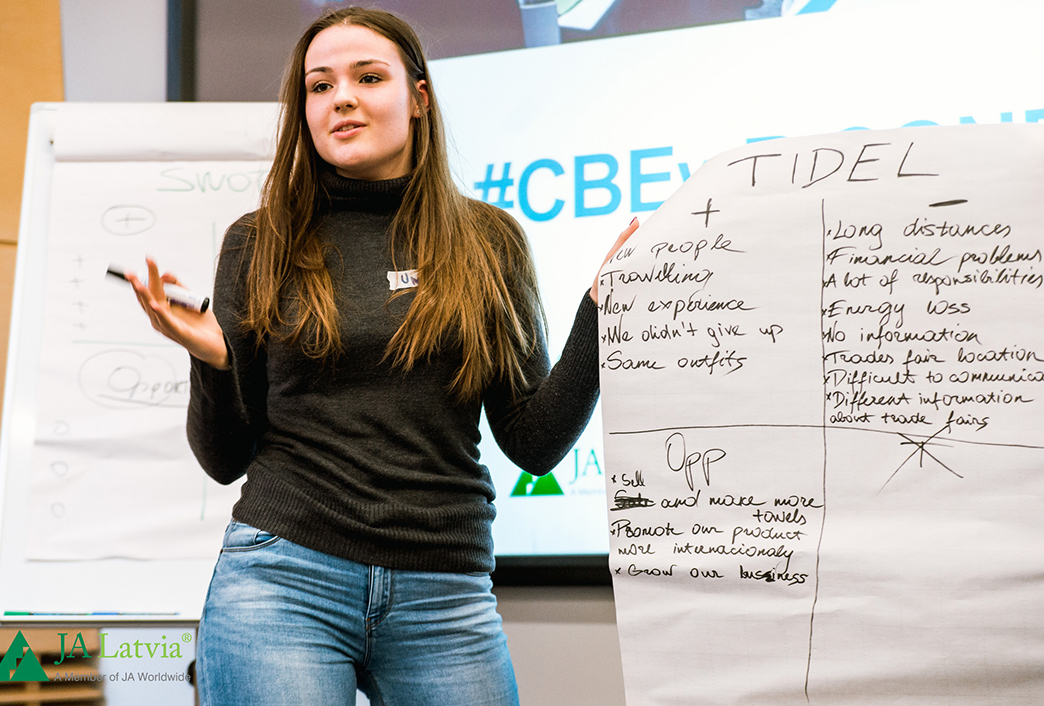 SWOT
+
+
+
+
+
Oppor
#CBEv
TIDEL
+
people
*Travelling
*New experience
*We didn't give up
*Same outfits
−
*Long distances
*Financial problems
*A lot of responsibilities
*Energy loss
*No information
*Trades fair location
*Difficult to communica
*Different information
about trade fairs
Opp
* Sell
and make more
towels
*Promote our product
more internacionaly
* Grow our business
JA
JA Latvia®
A Member of JA Worldwide